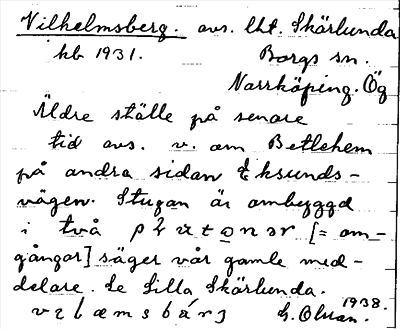 Vilhelmsberg. avs. lht. Skärlunda
kb 1931. Borgs sn.
Norrköping. Ög
Äldre ställe på senare
tid avs. v. om Betlehem
på andra sidan Eksunds-
vägen. Stugan är ombyggd
i två [= om-
gångar] säger vår gamle med-
delare. Se Lilla Skärlunda.
1938.
G. Olsson.